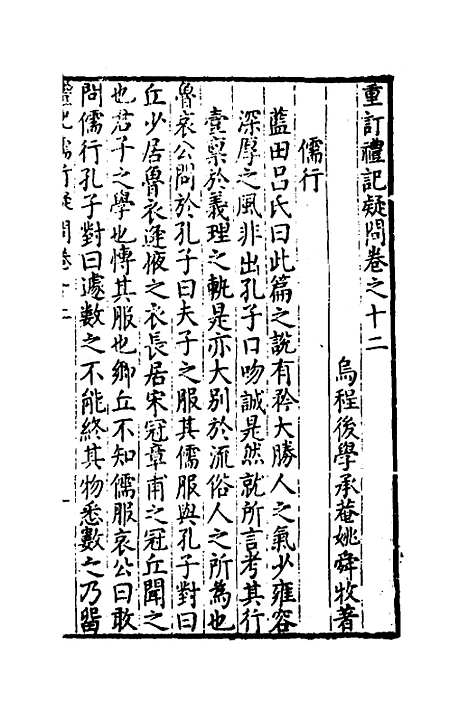 重訂禮記疑問卷之十二
烏程後學承菴姚舜牧著
儒行
藍田呂氏曰此篇之說有矜大勝人之氣少雍容
深厚之風非出孔子口吻誠是然就所言考其行
壹稟於義理之軌是亦大別於流俗人之所為也
魯哀公問於孔子曰夫子之服其儒服與孔子對曰
丘少居魯衣逢掖之衣長居宋冠章甫之冠丘聞之
也君子之學也愽其服也鄉丘不知儒服哀公曰敢
問儒行孔子對曰遽數之不能終其物悉數之乃留
禮記儒行疑問卷十二 一